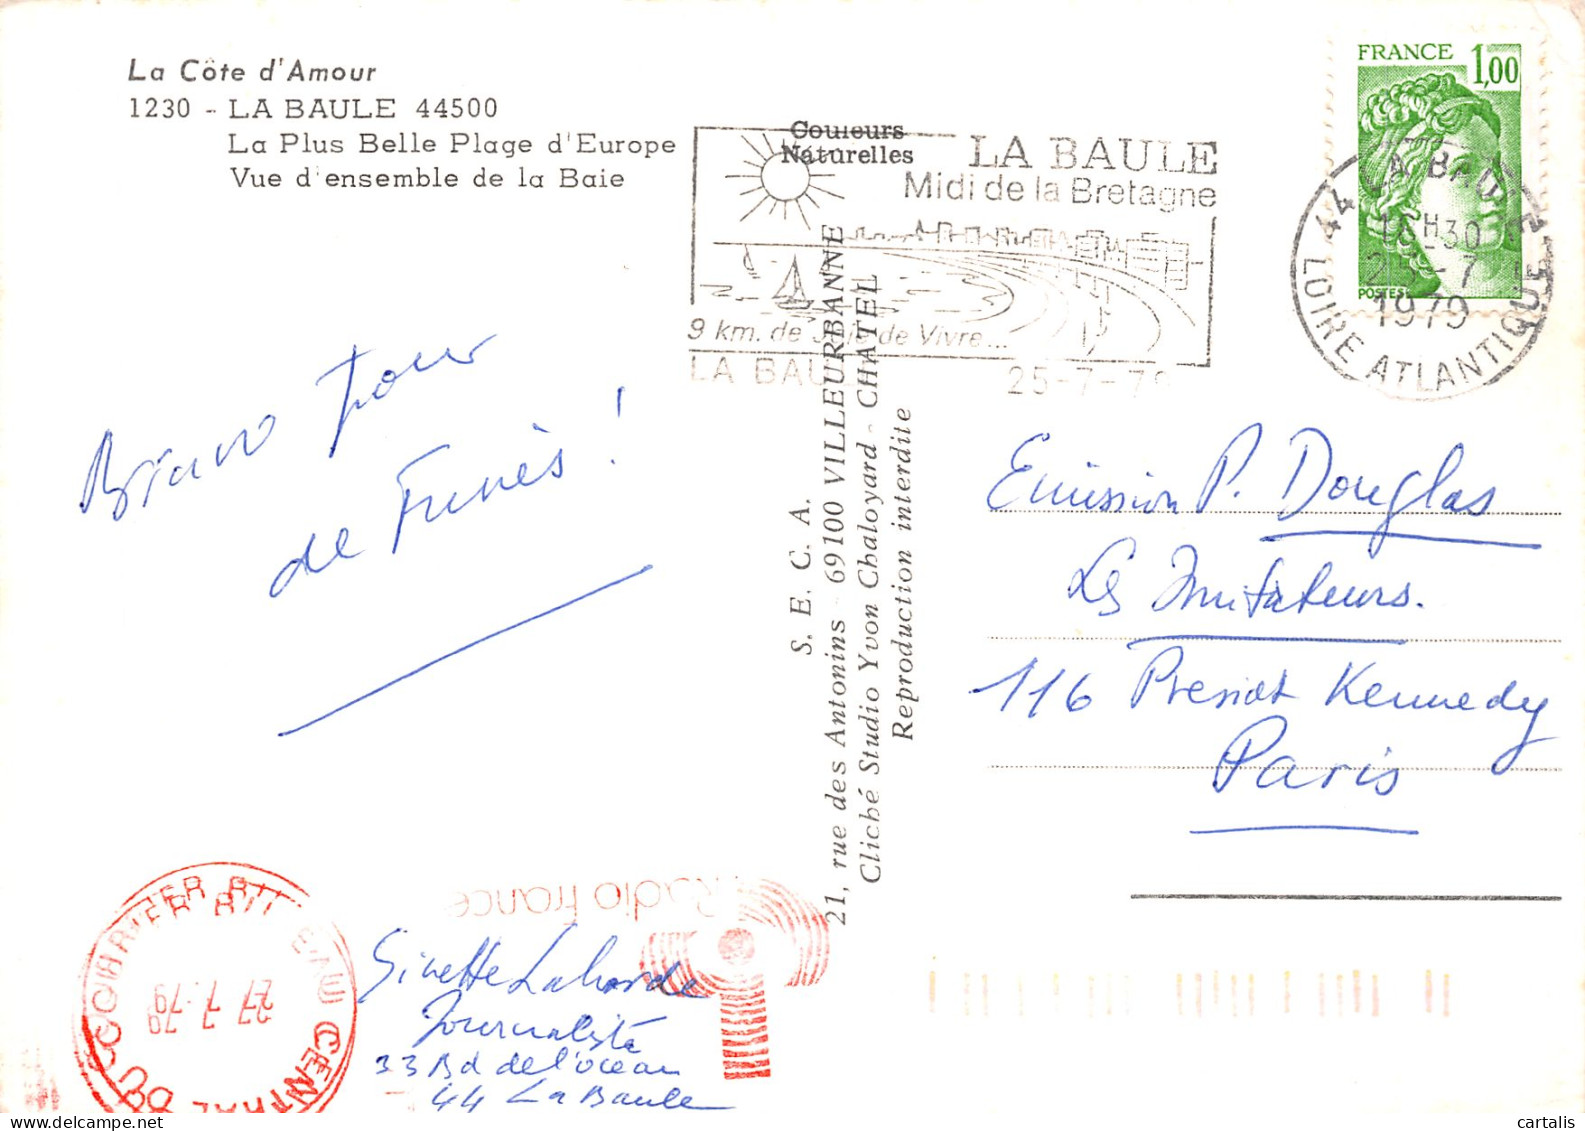 La Côte d'Amour
1230 - LA BAULE 44500
La Plus Belle Plage d'Europe
Vue d'ensemble de la Baie
Couleurs
Naturelles
LA BAULE
Midi de la Bretagne
9 km. de Joie de Vivre...
LA BAULE 25-7-79
FRANCE 1,00
POSTES
44 LA BAULE
16H30
25-7
1979
LOIRE ATLANTIQUE
Bravo pour
de Funès !
S. E. C. A.
21, rue des Antonins - 69100 VILLEURBANNE
Cliché Studio Yvon Chaloyard - CHATEL
Reproduction interdite
Emission P. Douglas
Les Imitateurs.
116 Presidt Kennedy
Paris
Radio france
COURRIER
CENTRAL
27.7.79
Ginette Laborde
Journaliste
33 Bd de l'océan
44 La Baule
cartalis